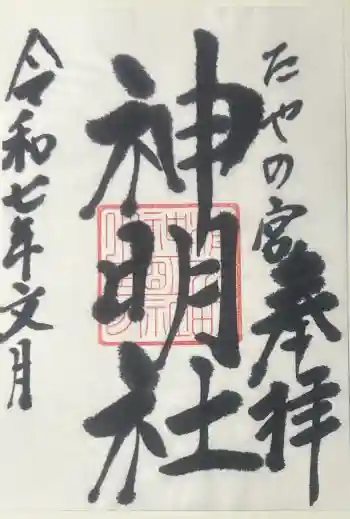 たやの宮 奉拝
神明社
令和七年文月